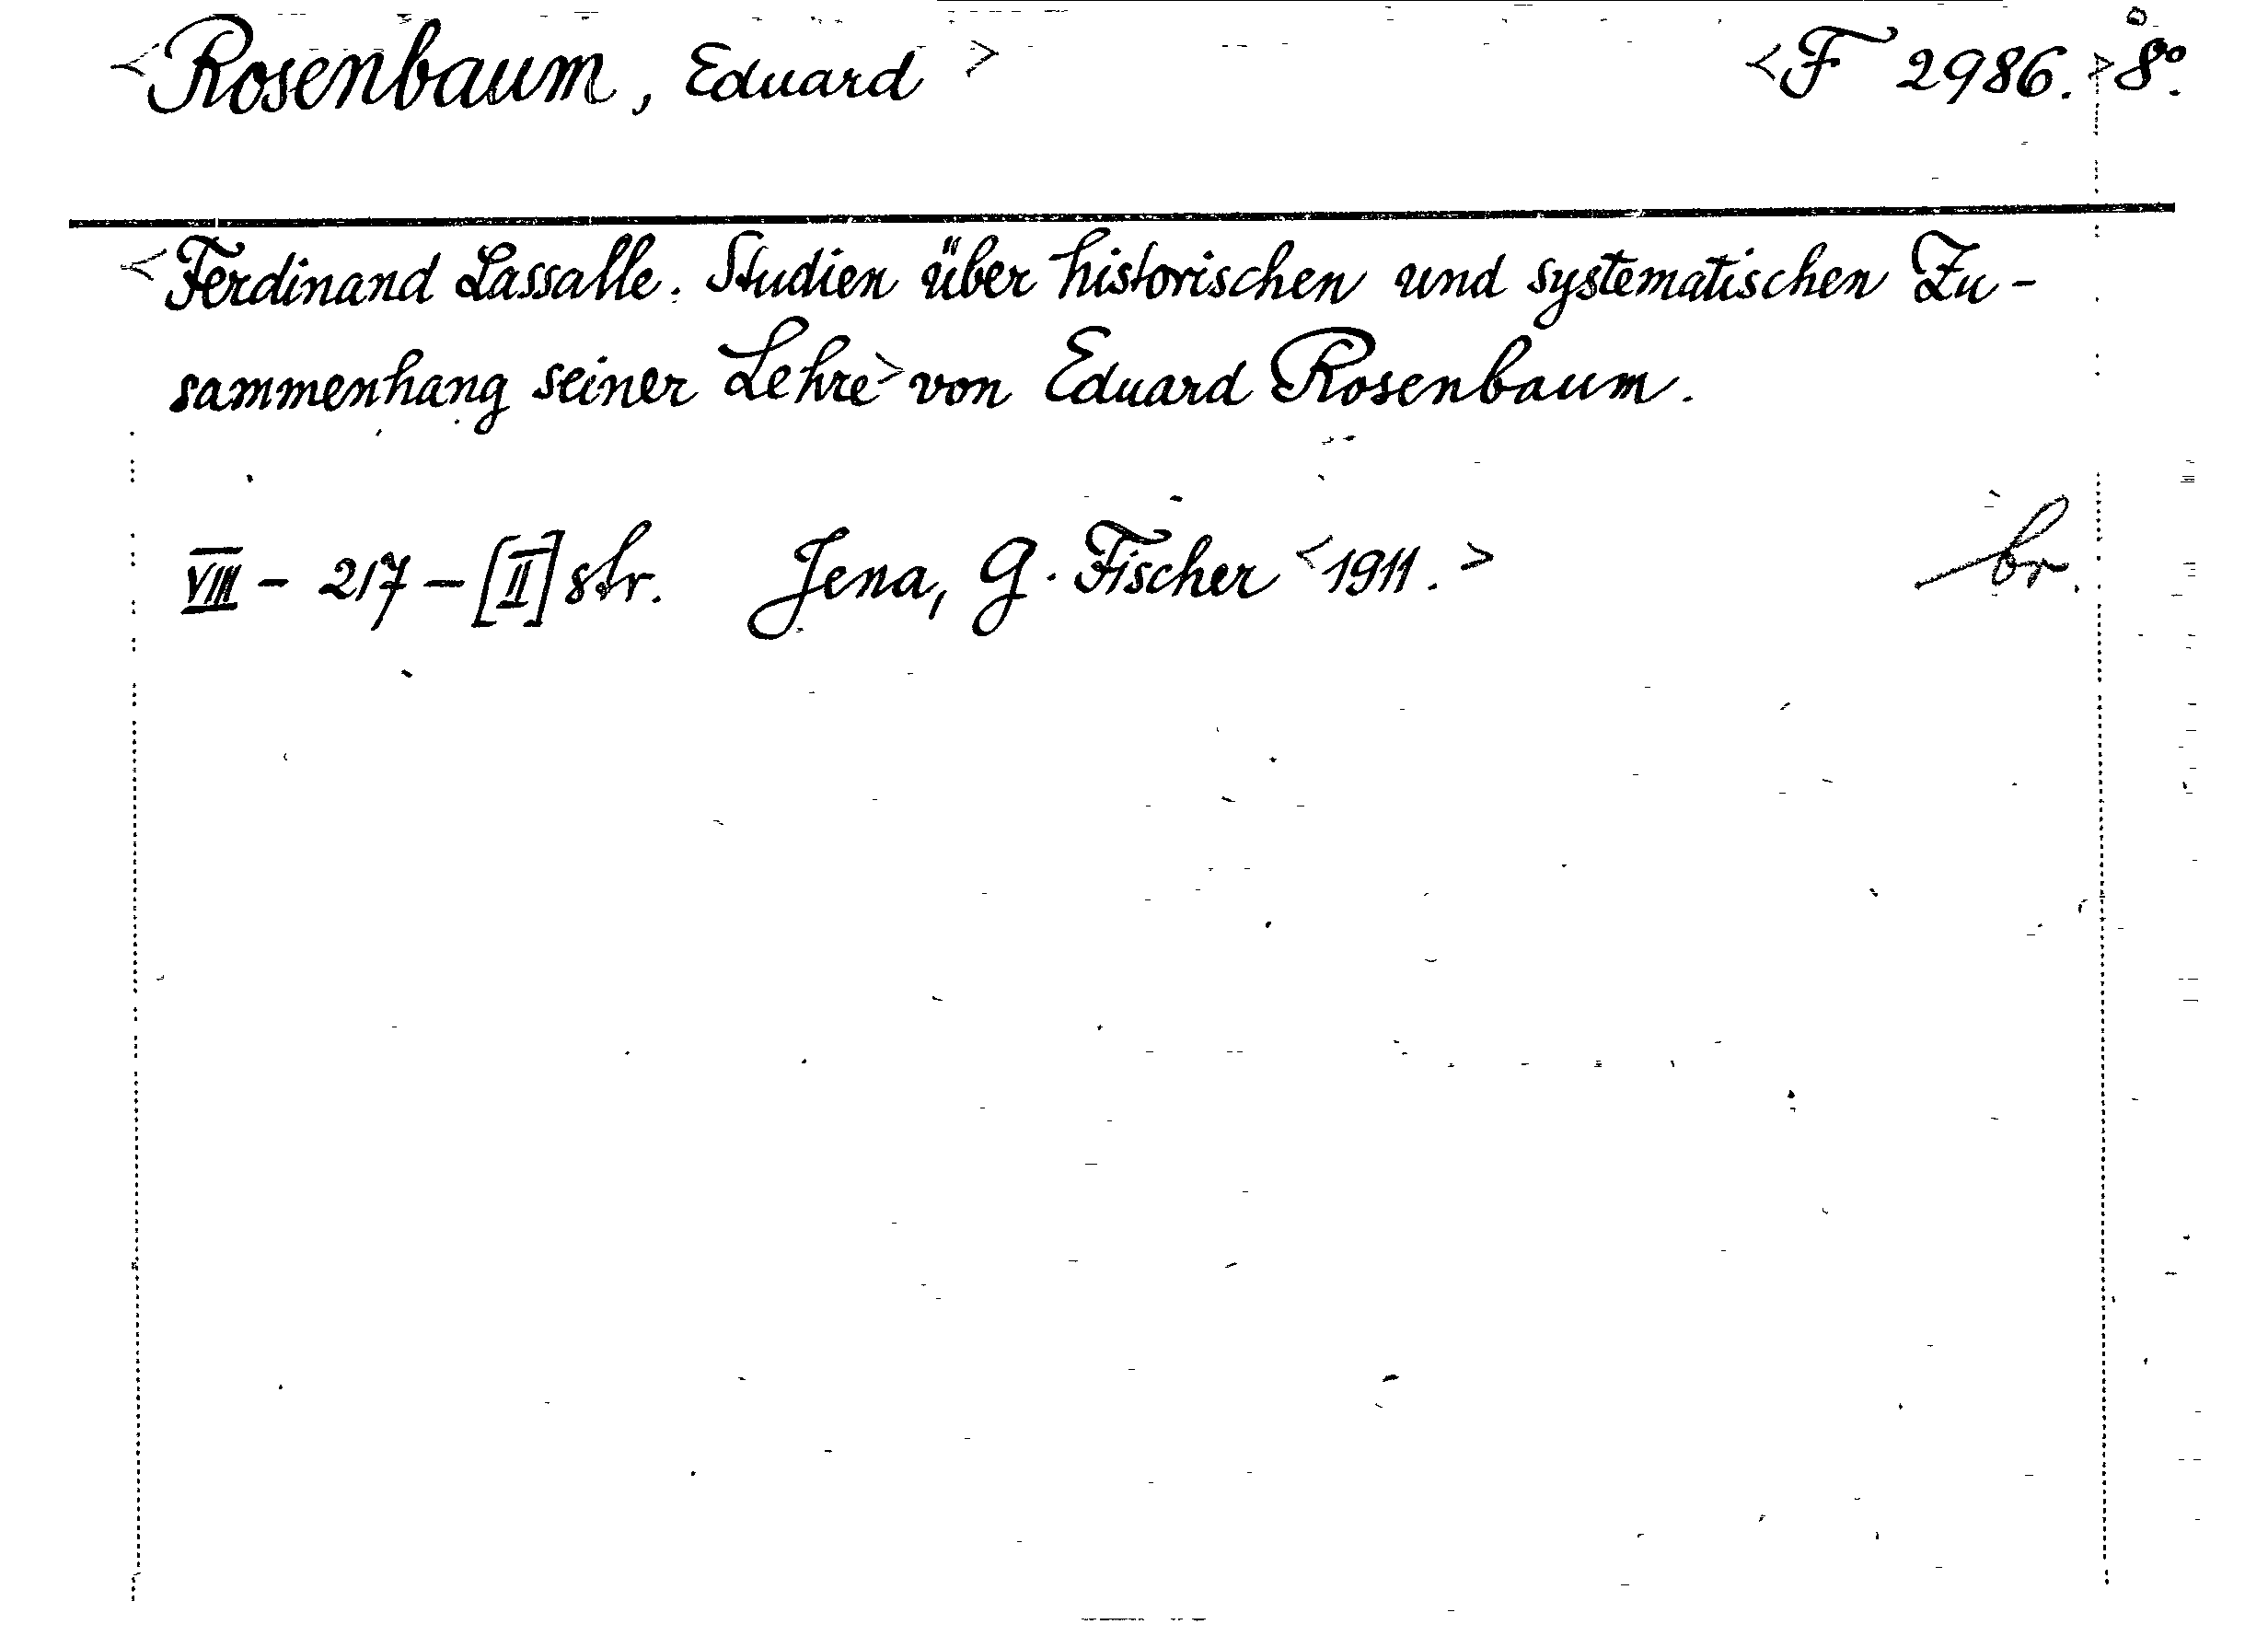 <Rosenbaum, Eduard> <F 2986.> 8°.
<Ferdinand Lassalle. Studien über historischen und systematischen Zu-
sammenhang seiner Lehre> von Eduard Rosenbaum.
VIII - 217 - [II] str. Jena, G. Fischer <1911.> br.